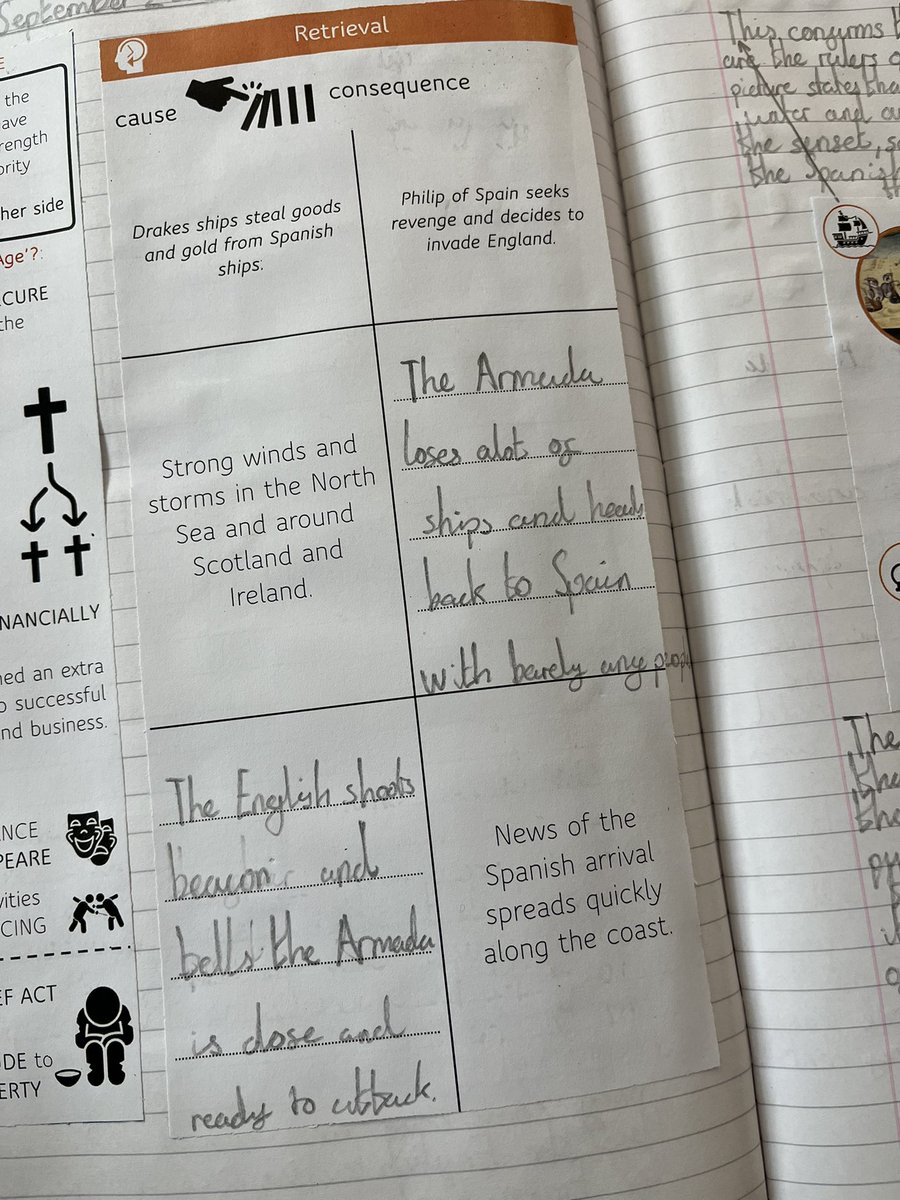 September 2
Retrieval
cause
consequence
Drakes ships steal goods
and gold from Spanish
ships.
Philip of Spain seeks
revenge and decides to
invade England.
Strong winds and
storms in the North
Sea and around
Scotland and
Ireland.
The Armada
loses alot of
ships and heads
back to Spain
with barely any people
The English shoots
beacon and
bells the Armada
is close and
ready to attack.
News of the
Spanish arrival
spreads quickly
along the coast.
the
ave
rength
ority
her side
Age'?:
CURE
the
NANCIALLY
ned an extra
o successful
nd business.
ANCE
PEARE
vities
CING
EF ACT
ODE to
ERTY
This confirms
are the rulers
picture states tha
water and
the sunset, s
the Spanish
The
the